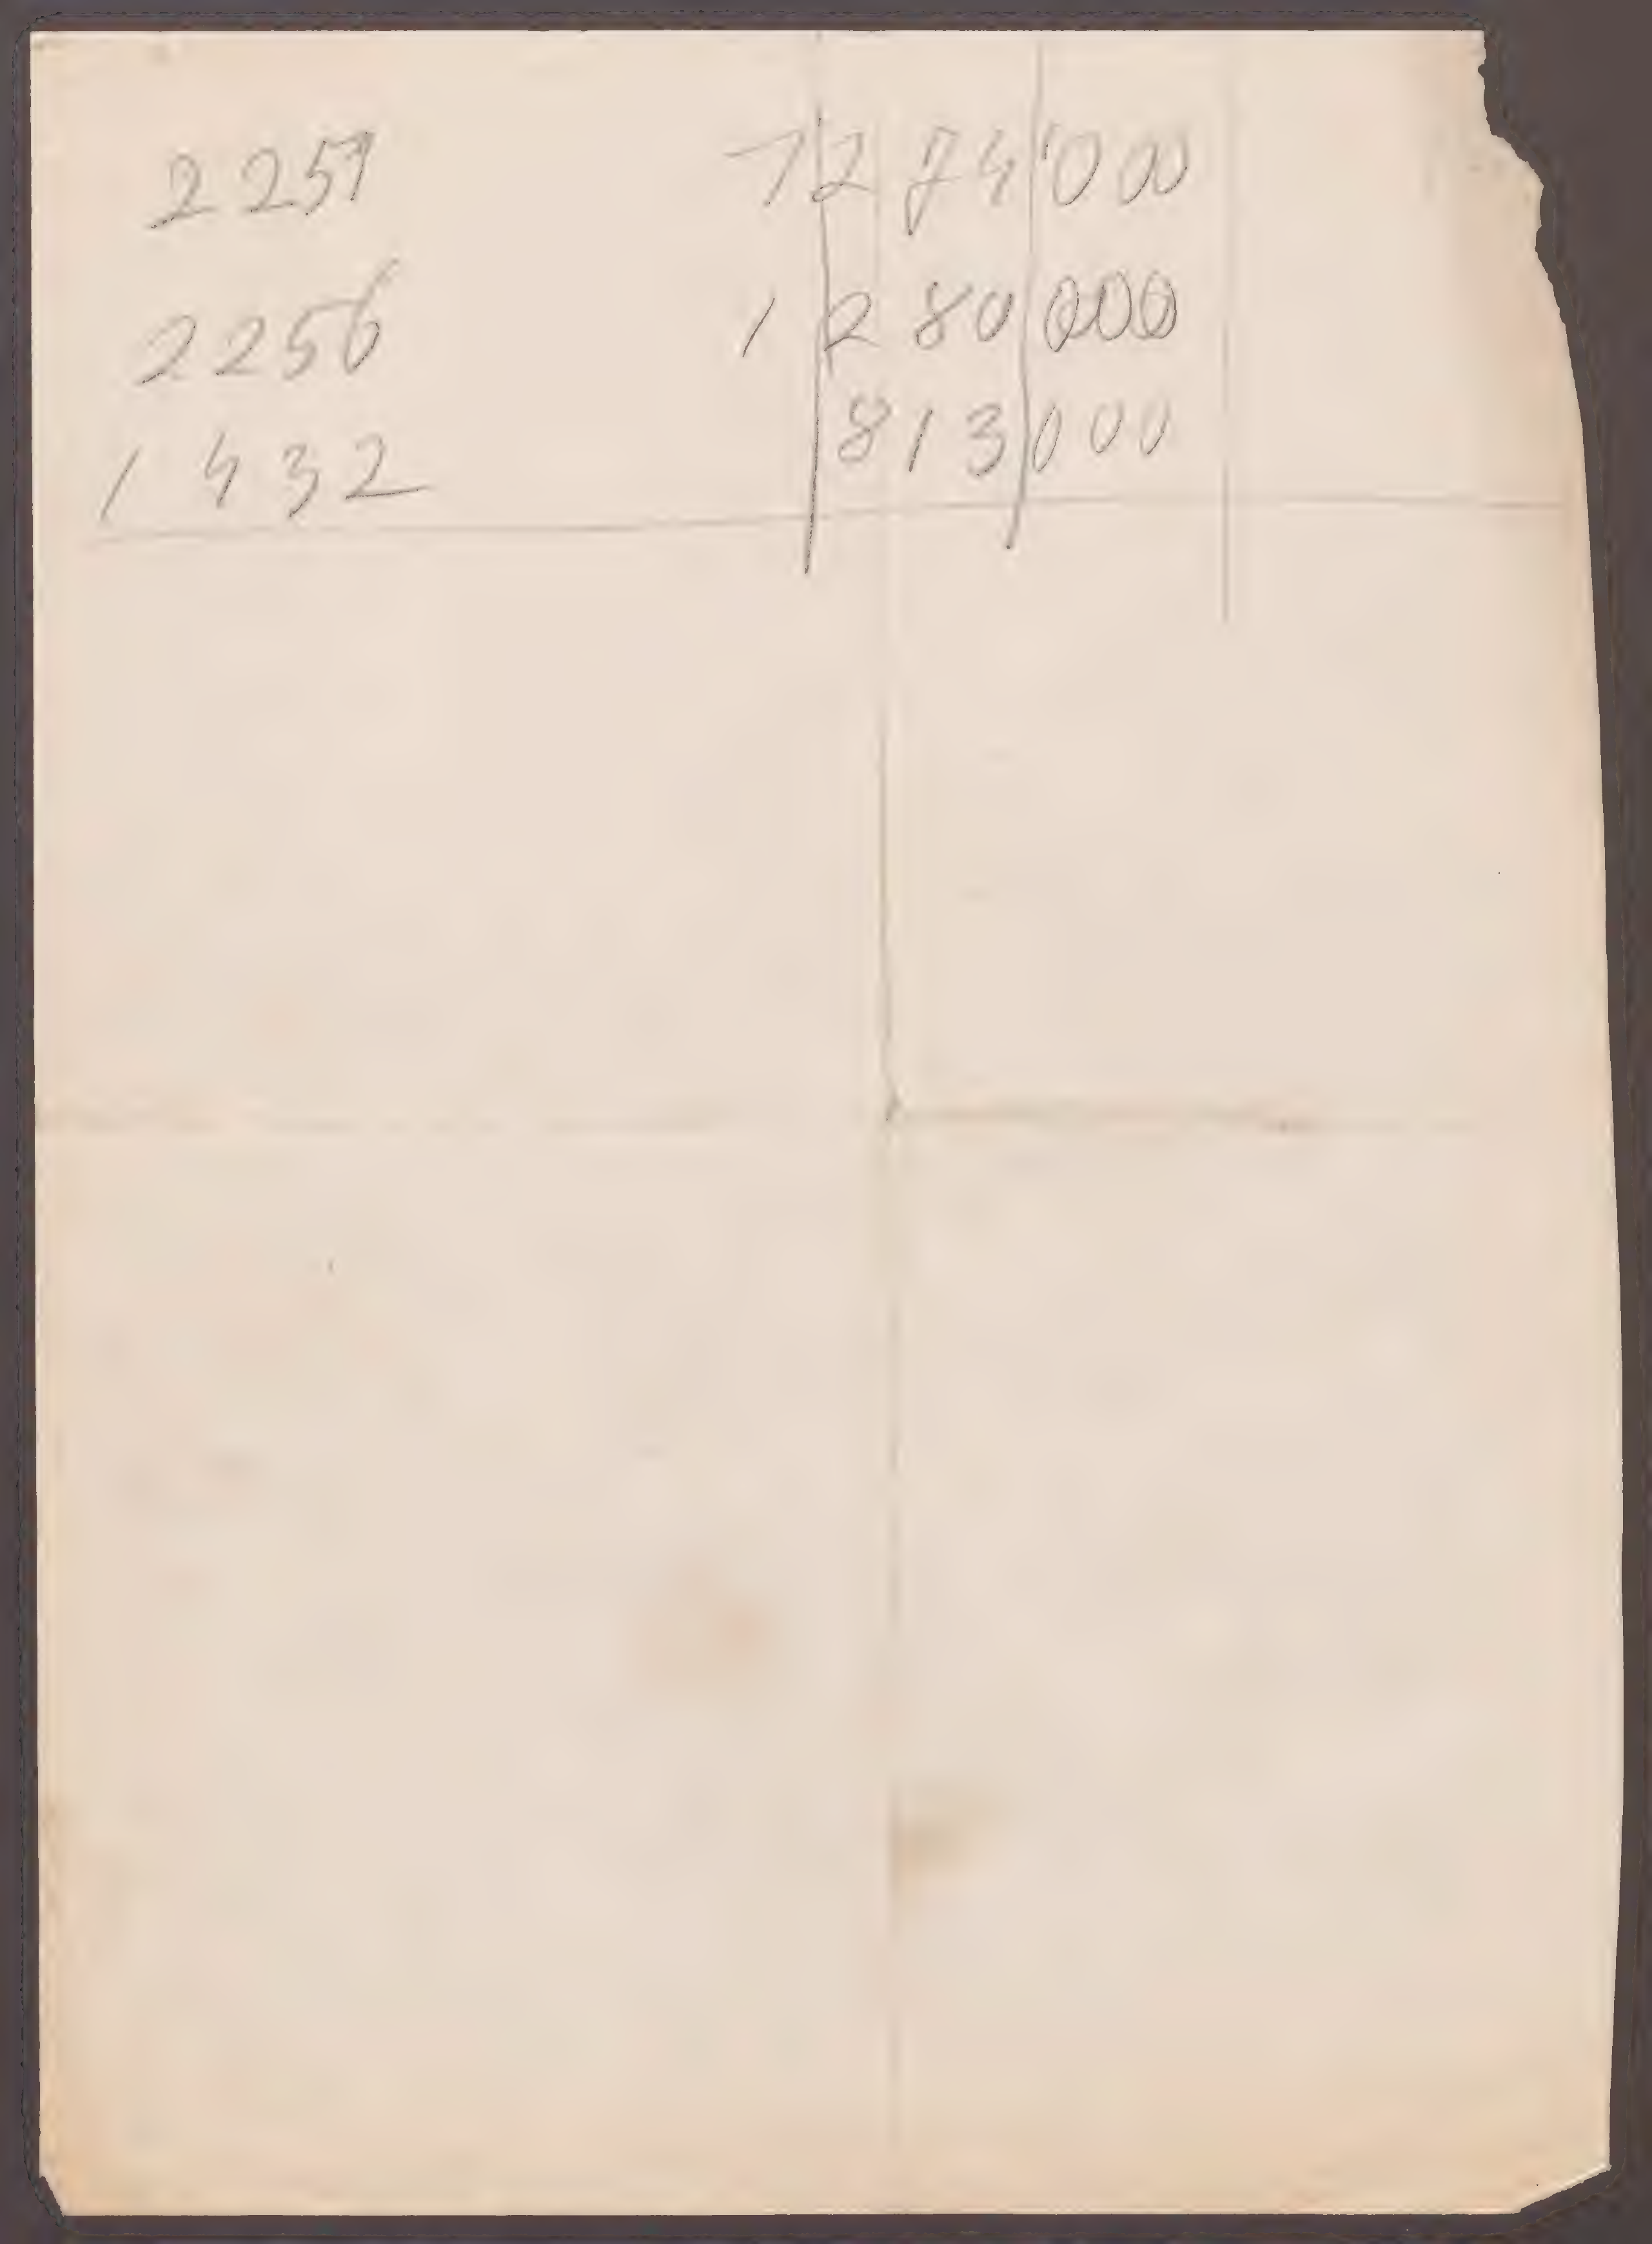 2257 1|2 74|000
2256 1|2 80|000
1432 |813|000